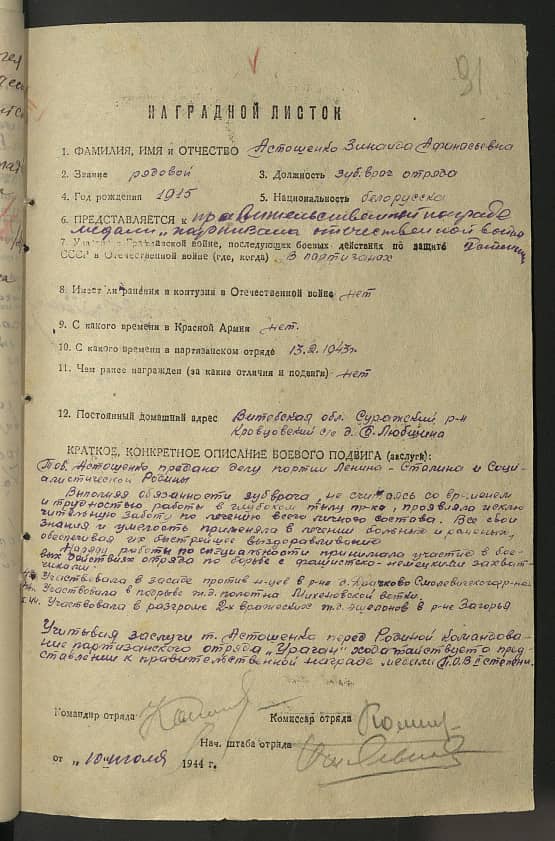 91
НАГРАДНОЙ ЛИСТОК
1. ФАМИЛИЯ, ИМЯ и ОТЧЕСТВО Астошенко Зинаида Афанасьевна
2. Звание рядовой 3. Должность зуб.врач отряда
4. Год рождения 1915 5. Национальность белорусска
6. ПРЕДСТАВЛЯЕТСЯ к правительственной награде
медали „партизана отечественной войны
7. Участие в Гражданской войне, последующих боевых действиях по защите I степени
СССР в Отечественной войне (где, когда) в партизанах
8. Имеет ли ранения и контузии в Отечественной войне нет
9. С какого времени в Красной Армии нет.
10. С какого времени в партизанском отряде 13.2.1943г.
11. Чем ранее награжден (за какие отличия и подвиги) нет
12. Постоянный домашний адрес Витебская обл. Суражский р-н
с/с д. Б. Любщина
КРАТКОЕ, КОНКРЕТНОЕ ОПИСАНИЕ БОЕВОГО ПОДВИГА (заслуги):
Тов. Астошенко предана делу портии Ленина-Сталина и Соци-
алистической Родины
Выполняя обязанности зубврача, не считаясь со временем
и трудностью работы в глубоком тылу пр-ка, проявляла исклю
чительную заботу по лечению всего личного состава. Все свои
знания и умелость применяла в лечении больных и раненых,
обеспечивая их быстрейшее выздоравливание
Наряду работы по специальности принимала участие в бое-
вых действиях отряда по борьбе с фашистско-немецкими захват-
чиками.
Участвовала в засаде против н-цев в р-не д. Крачково Смолевичского р-на
Участвовала в подрыве ж.д. полотна Михеновской ветки.
Участвовала в разгроме 2-х вражеских ж.д. эшелонов в р-не Загорья
Учитывая заслуги т. Астошенко перед Родиной командова-
ние партизанского отряда „Ураган" ходатайствует о пред-
ставлении к правительственной награде медали П.О.В. I степени.
Командир отряда Комиссар отряда
Нач. штаба отряда
от „10" июля 1944 г.